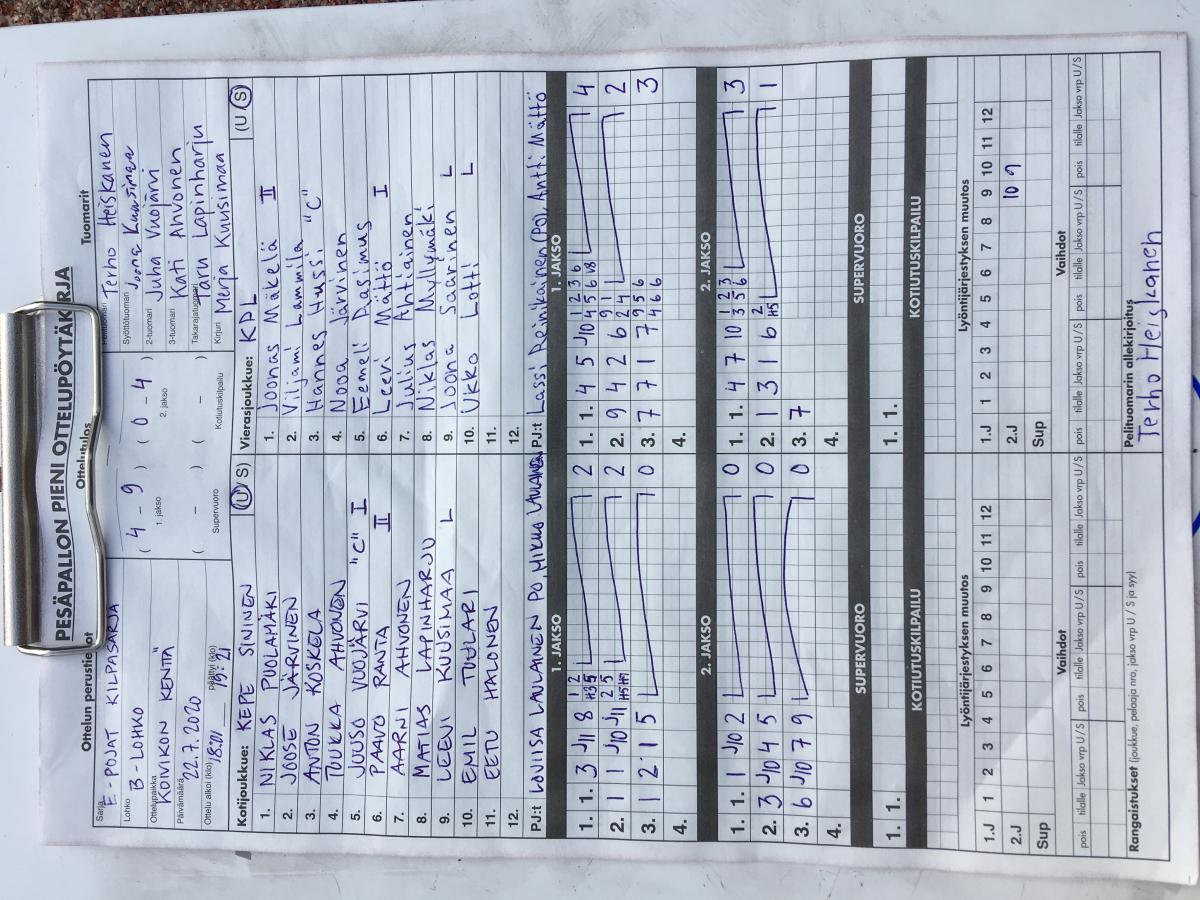 PESÄPALLON PIENI OTTELUPÖYTÄKIRJA
Ottelun perustiedot
Sarja
E-POJAT KILPASARJA
Lohko
B-LOHKO
Ottelupaikka
KOIVIKON KENTTÄ
Päivämäärä
22.7.2020
Ottelu alkoi (klo) 18:01 päättyi (klo) 19:21
Ottelutulos
( 4 - 9 ) ( 0 - 4 )
1. jakso 2. jakso
( - ) ( - )
Supervuoro Kotiutuskilpailu
Tuomarit
Pelituomari Terho Heiskanen
Syöttötuomari Joona Kuusimaa
2-tuomari Juha Vuojärvi
3-tuomari Kati Ahvonen
Takarajatuomari Taru Lapinharju
Kirjuri Merja Kuusimaa
Kotijoukkue: KEPE SININEN (U / S)
1. NIKLAS PUOLAMÄKI
2. JOOSE JÄRVINEN
3. ANTON KOSKELA
4. TUUKKA AHVONEN
5. JUUSO VUOJÄRVI "C" I
6. PAAVO RANTA II
7. AARNI AHVONEN
8. MATIAS LAPINHARJU
9. LEEVI KUUSIMAA L
10. EMIL TUULARI
11. EETU HALONEN
12.
Vierasjoukkue: KPL (U / S)
1. Joonas Mäkelä II
2. Viljami Lammila
3. Hannes Hussi "C"
4. Nooa Järvinen
5. Eemeli Rasimus
6. Leevi Mättö I
7. Julius Ahtiainen
8. Niklas Myllymäki
9. Joona Saarinen L
10. Ukko Lotti L
11.
12.
PJ:t LOVIISA LAULAINEN PO, MIKKO LAULAINEN
PJ:t Lassi Reinikainen (Po), Antti Mättö
1. JAKSO
1. 1. 3 J11 8 1 2 H3 5 2
2. 1 1 J10 J11 2 5 H5 H9 2
3. 1 2 1 5 0
4.
1. JAKSO
1. 1. 4 5 J10 1 2 3 6 4 5 6 V8 4
2. 9 4 2 6 9 1 2 4 2
3. 7 7 1 7 9 5 6 4 6 6 3
4.
2. JAKSO
1. 1. 1 J10 2 0
2. 3 J10 4 5 0
3. 6 J10 7 9 0
4.
2. JAKSO
1. 1. 4 7 10 1 2 3 3 5 6 3
2. 1 3 1 6 2 H5 1
3. 7
4.
SUPERVUORO
1. 1.
SUPERVUORO
1. 1.
KOTIUTUSKILPAILU
KOTIUTUSKILPAILU
Lyöntijärjestyksen muutos
1.J 1 2 3 4 5 6 7 8 9 10 11 12
2.J
Sup
Lyöntijärjestyksen muutos
1.J 1 2 3 4 5 6 7 8 9 10 11 12
2.J 10 9
Sup
Vaihdot
pois tilalle Jakso vrp U / S pois tilalle Jakso vrp U / S pois tilalle Jakso vrp U / S
Vaihdot
pois tilalle Jakso vrp U / S pois tilalle Jakso vrp U / S pois tilalle Jakso vrp U / S
Rangaistukset (joukkue, pelaaja nro, jakso vrp U / S ja syy)
Pelituomarin allekirjoitus
Terho Heiskanen